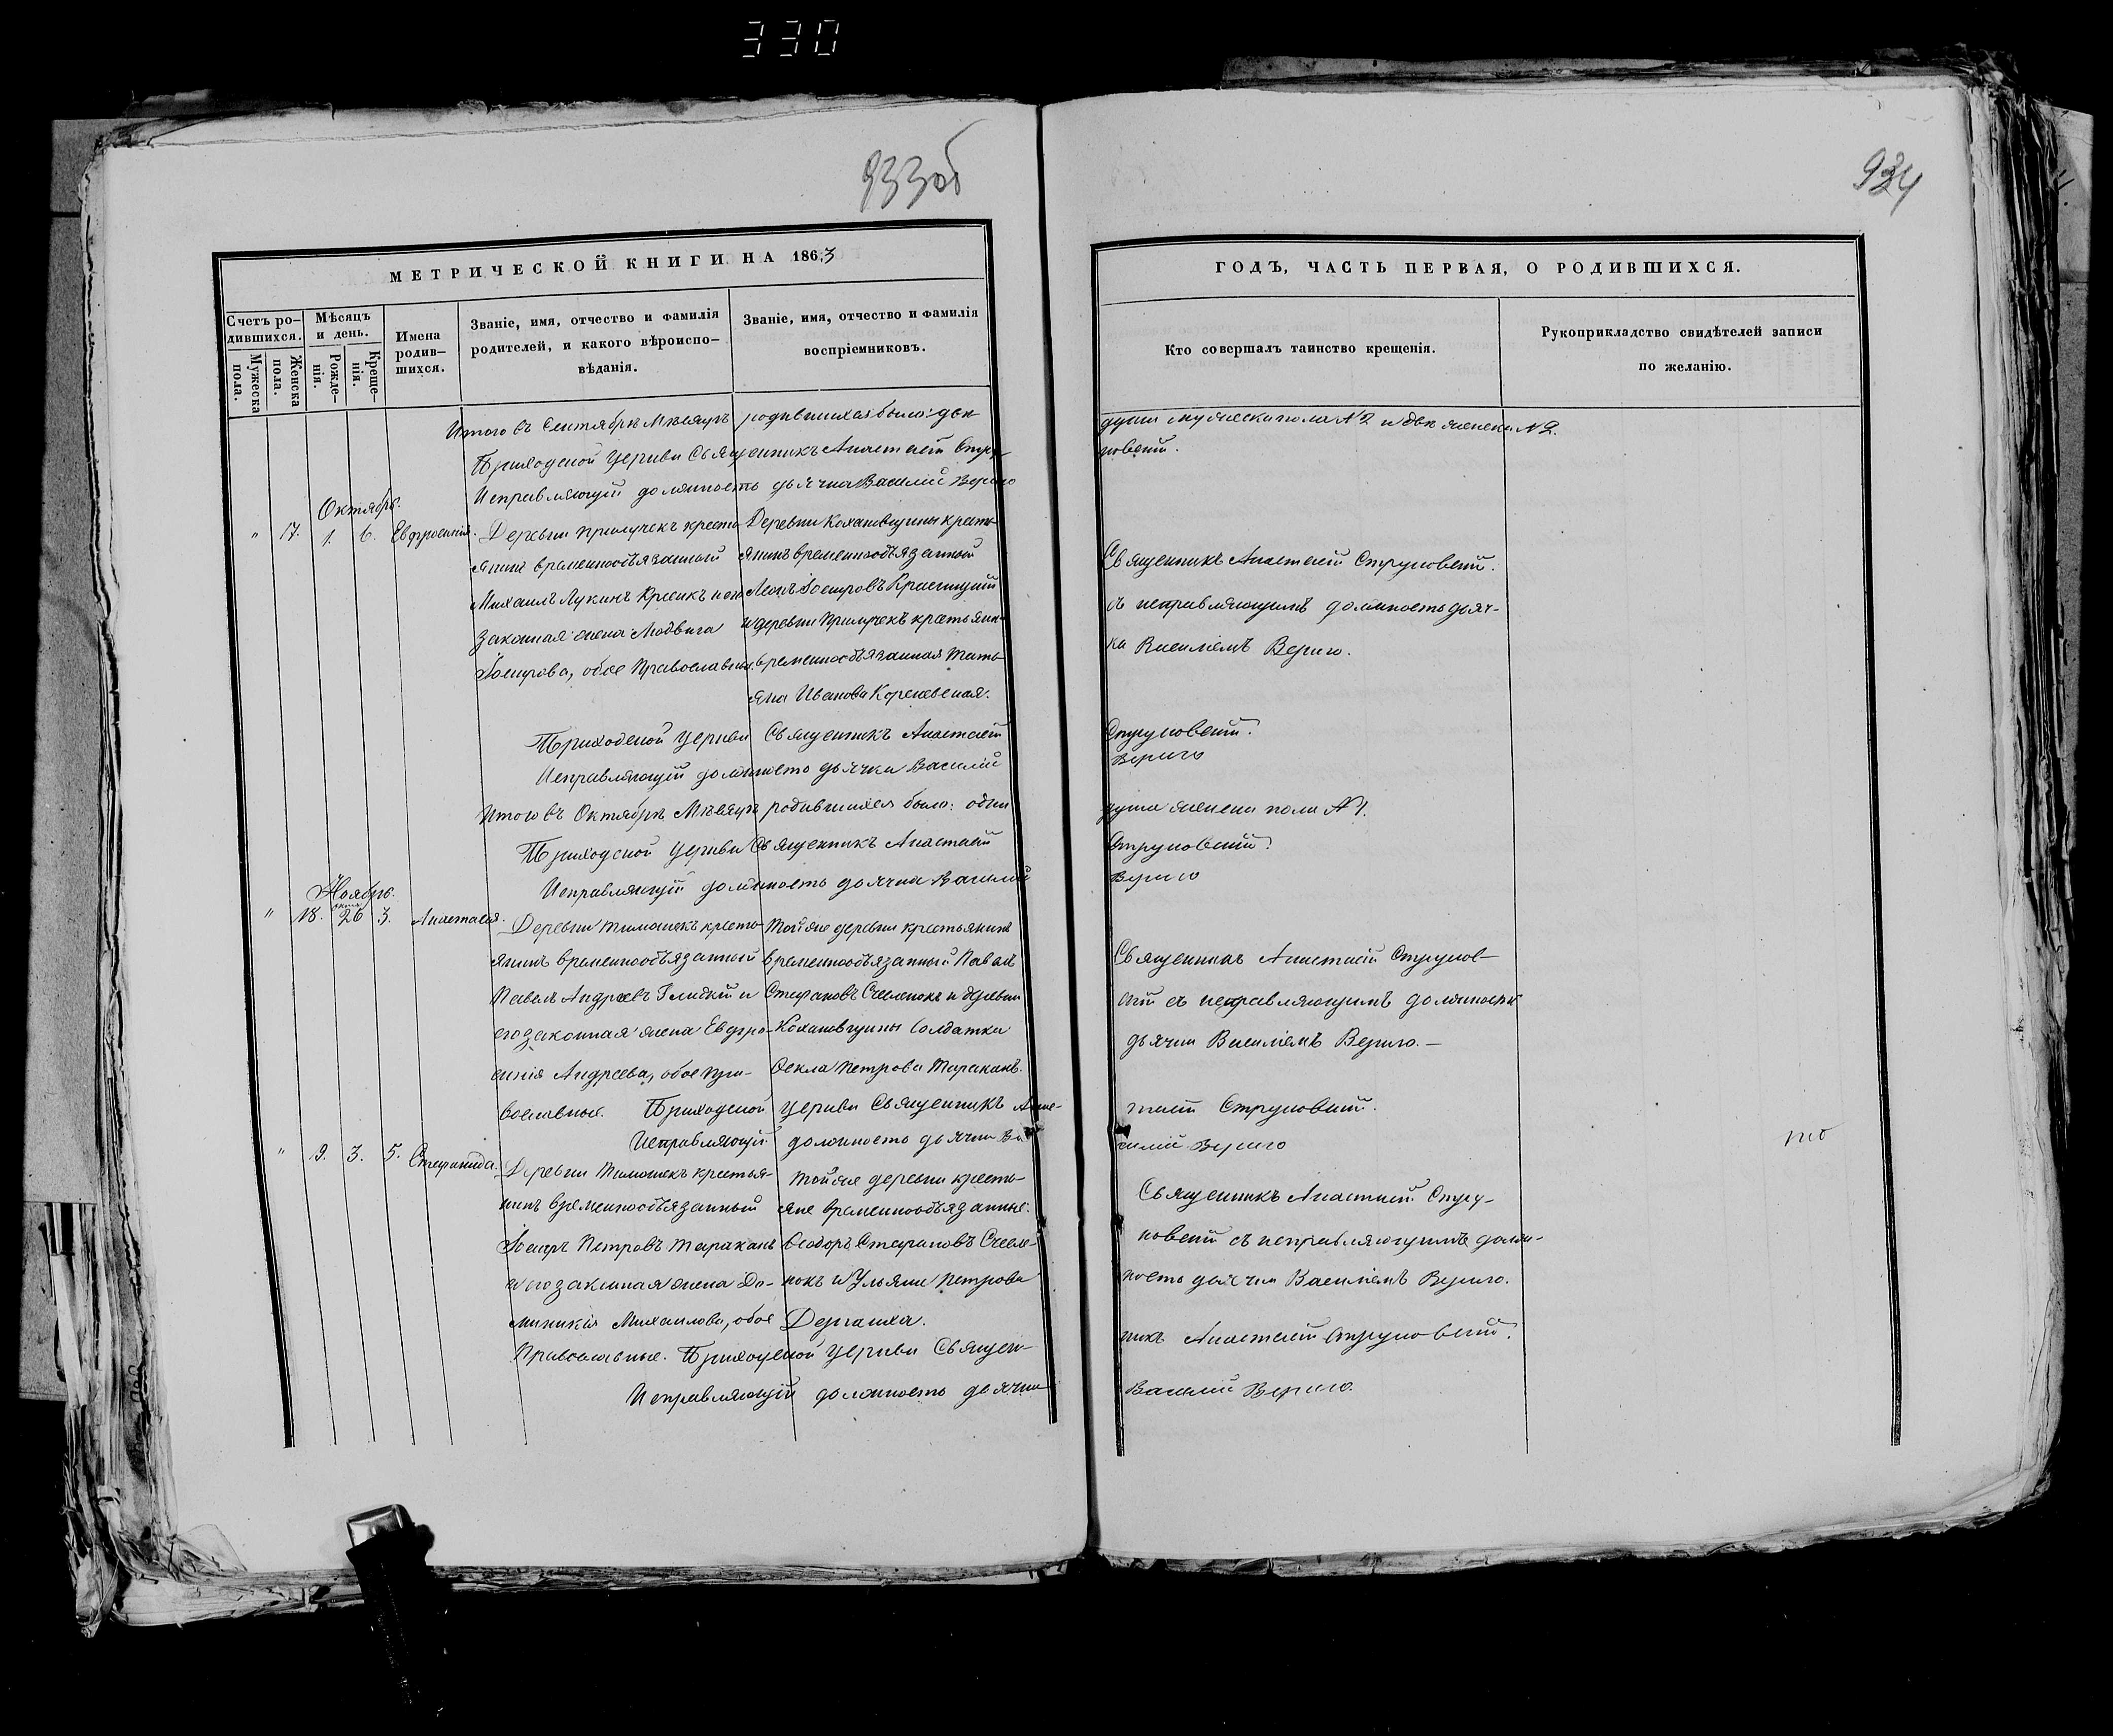 330
933об
934
МЕТРИЧЕСКОЙ КНИГИ НА 1863
ГОДЪ, ЧАСТЬ ПЕРВАЯ, О РОДИВШИХСЯ.
Счетъ ро-
дившихся.
Мужеска
пола.
Женска
пола.
Мѣсяцъ
и день.
Рожде-
нія.
Креще-
нія.
Имена
родив-
шихся.
Званіе, имя, отчество и фамилія
родителей, и какого вѣроиспо-
вѣданія.
Званіе, имя, отчество и фамилія
воспріемниковъ.
Кто совершалъ таинство крещенія.
Рукоприкладство свидѣтелей записи
по желанію.
Итого въ Сентябрѣ Мѣсяцѣ родившихся было: двѣ
души мужеска пола № 2 и двѣ женска № 2.
Приходской Церкви Священникъ Анастасій Стру-
ковскій.
Исправляющій должность дьячка Василій Верыго
Октябрь.
" 17. 1. 6. Евфросинія.
Деревни Прилучекъ кресть-
янинъ временнообязанный
Михаилъ Лукинъ Кресикъ и его
законная жена Людвига
Іосифова, обое Православные.
Деревни Кохановщины кресть-
янинъ временнообязанный
Леонъ Іосифовъ Красницкій
и деревни Прилучекъ крестьянка
временнообязанная Тать-
яна Иванова Кореневская.
Священникъ Анастасій Струковскій.
съ исправляющимъ должность дьяч-
ка Василіемъ Верыго.
Приходской Церкви Священникъ Анастасій
Струковскій.
Исправляющій должность дьячка Василій
Верыго
Итого въ Октябрѣ Мѣсяцѣ родившихся было: одна
душа женска пола № 1.
Приходской Церкви Священникъ Анастасій
Струковскій.
Исправляющій должность дьячка Василій
Верыго
Ноябрь.
" 18. окт. 26 3. Анастасія.
Деревни Тимошекъ кресть-
янинъ временнообязанный
Павелъ Андреевъ Глидкій и
его законная жена Евфро-
синія Андреева, обое Пра-
вославные.
Той же деревни крестьянинъ
временнообязанный Павелъ
Стефановъ Счесленокъ и деревни
Кохановщины Солдатка
Ѳекла Петрова Тараканъ.
Священникъ Анастасій Струков-
скій съ исправляющимъ должность
дьячка Василіемъ Верыго. —
Приходской Церкви Священникъ Анас-
тасій Струковскій.
Исправляющій должность дьячка Ва-
силій Верыго
" 9. 3. 5. Стефанида.
Деревни Тимошекъ крестья-
нинъ временнообязанный
Іосифъ Петровъ Тараканъ
и его законная жена До-
миникія Михаилова, обое
Православные.
Той же деревни кресть-
яне временнообязанные:
Ѳеодоръ Стефановъ Счесле-
нокъ и Ульяна Петрова
Дергаиха.
Священникъ Анастасій Стру-
ковскій съ исправляющимъ долж-
ность дьячка Василіемъ Верыго.
Приходской Церкви Священ-
никъ Анастасій Струковскій.
Исправляющій должность дьячка
Василій Верыго.